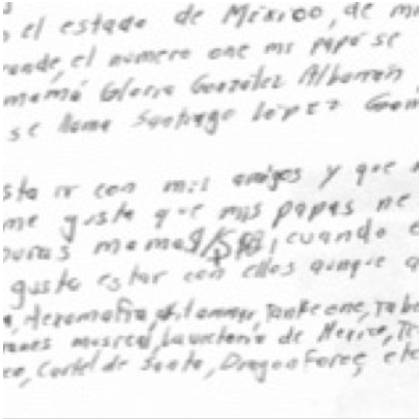 el estado de México, de mi
grande, el numero one mi papá se
mamá Gloria González Albarrán
se llama Santiago López Gon
sta ir con mis amigos y que
me gusta que mis papas me
puras mamas, cuando e
gusto estar con ellos aunque a
Tankeone, Tabe
musical, Lauretania de Mexico, Th
Cartel de Santa, DragonForce, etc